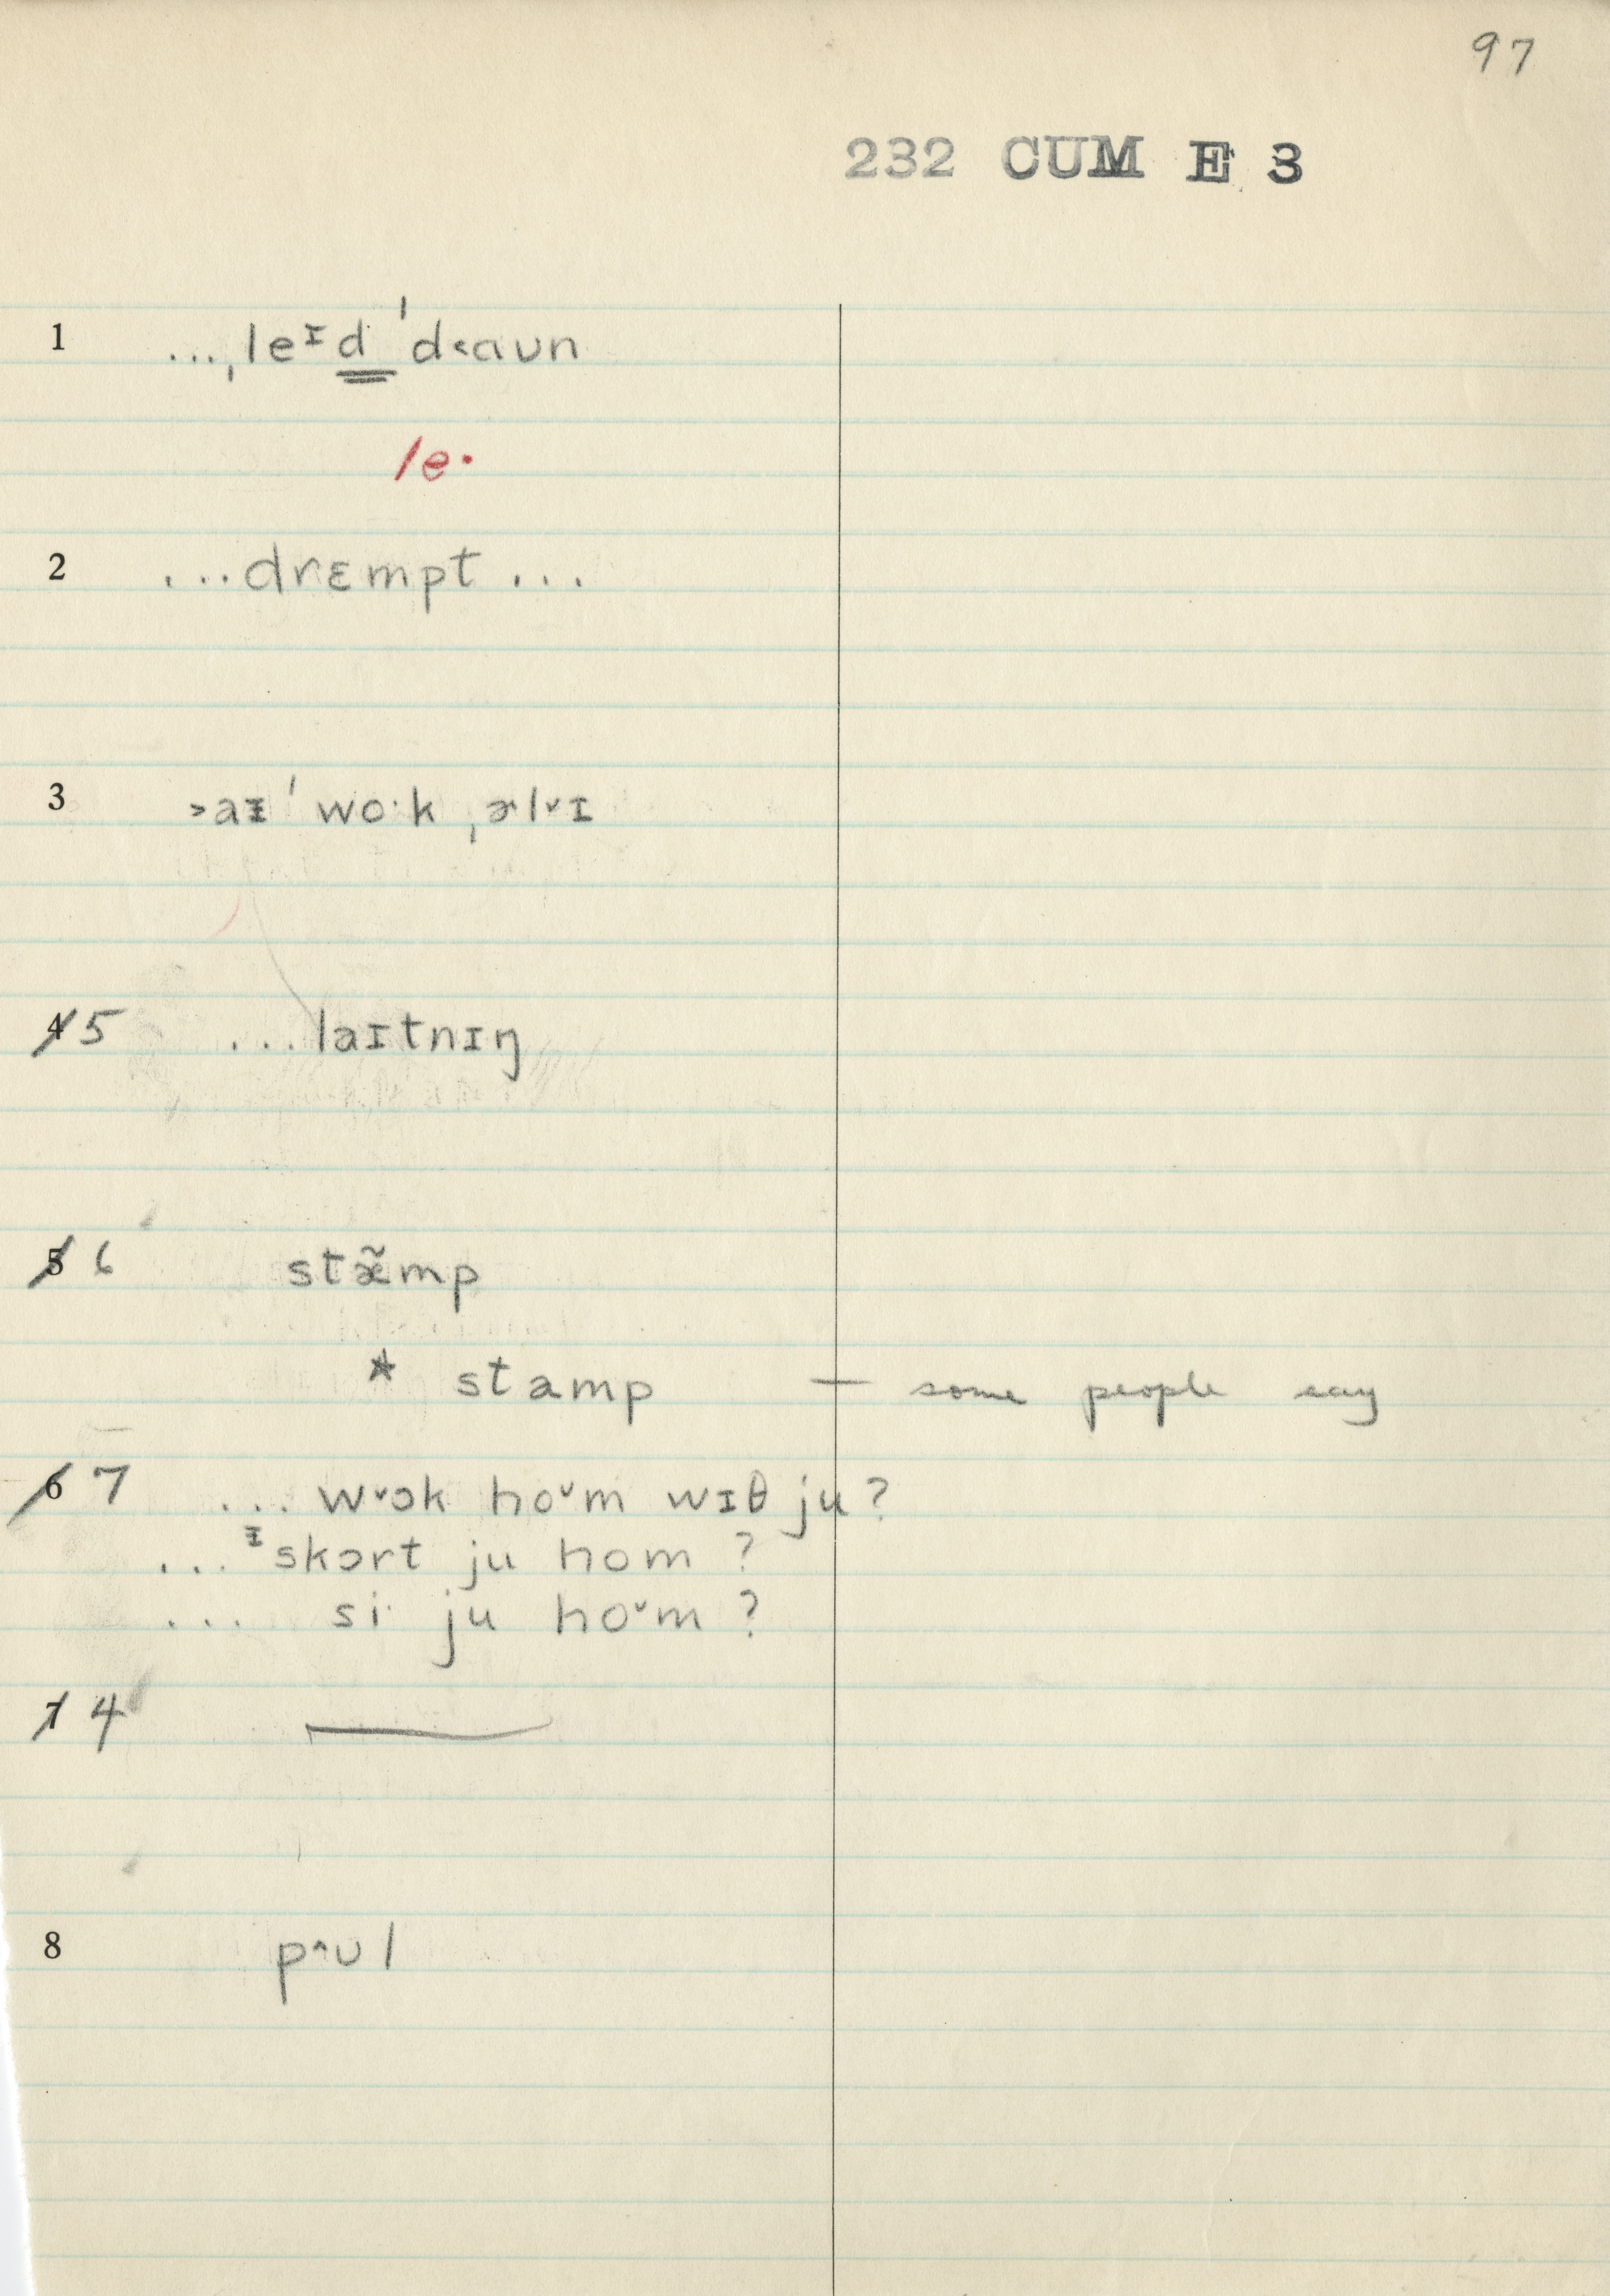 97
232 CUM E 3
1 ...ˌleᶦd ˈd˂aʊn
le·
2 ...drɛmpt...
3 ˃aᵻ ˈwo·k ˌɚlˇɪ
4 5 ...laɪtnɪŋ
5 6 stæ̃mp
* stamp — some people say
6 7 ... wˇɔk hoˇm wɪθ ju?
...ᵻskɔrt ju hom ?
... si· ju hoˇm ?
7 4 —
8 pˆʊl